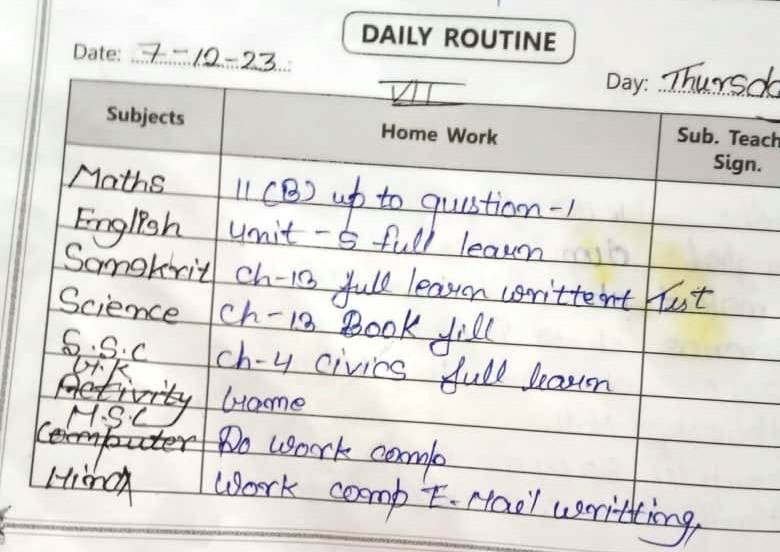 DAILY ROUTINE
Date: 7-12-23
Day: Thursda
VII
Subjects Home Work Sub. Teach Sign.
Maths 11 (B) up to qustion-1
English unit - 5 full learn
Sanskrit ch-13 full learn writtent Test
Science ch-13 Book fill
S.S.C ch-4 civics full learn
G.K
Activity Game
M.S.C
Computer Do work comp
Hindi work comp E-Mail writting,